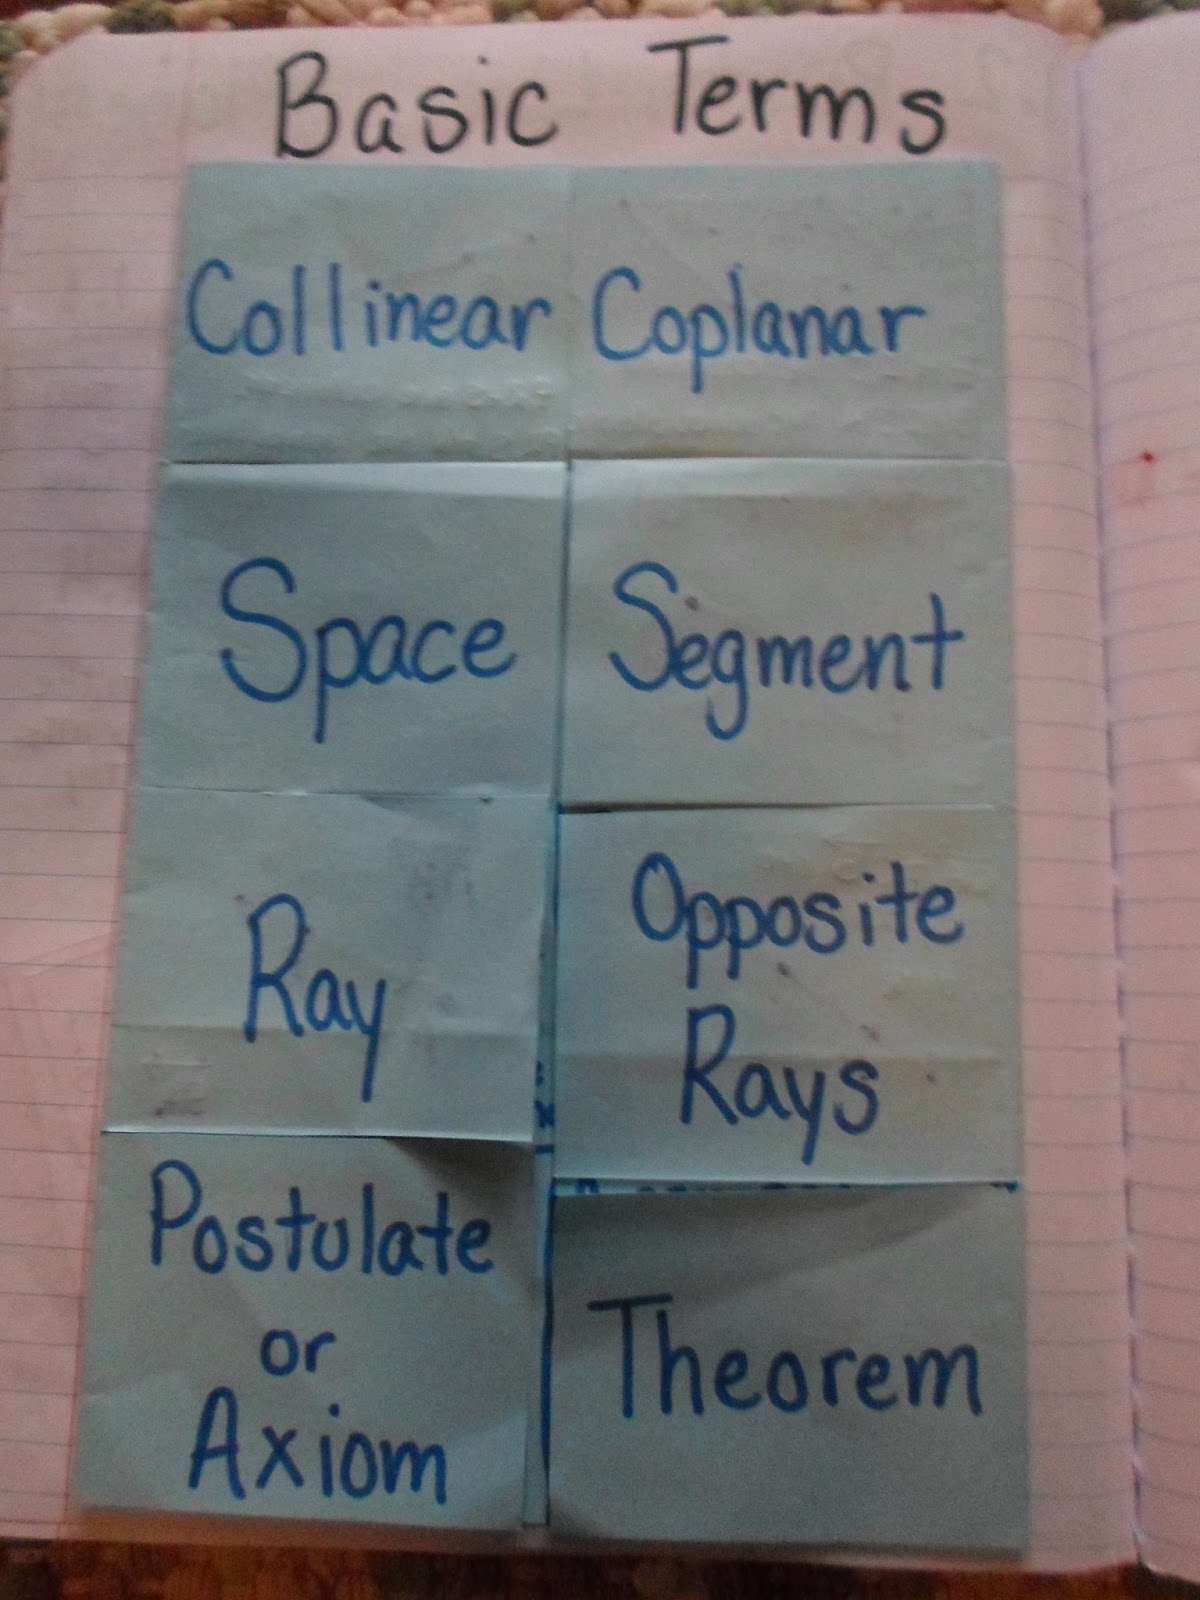 Basic Terms
Collinear
Coplanar
Space
Segment
Ray
Opposite
Rays
Postulate
or
Axiom
Theorem